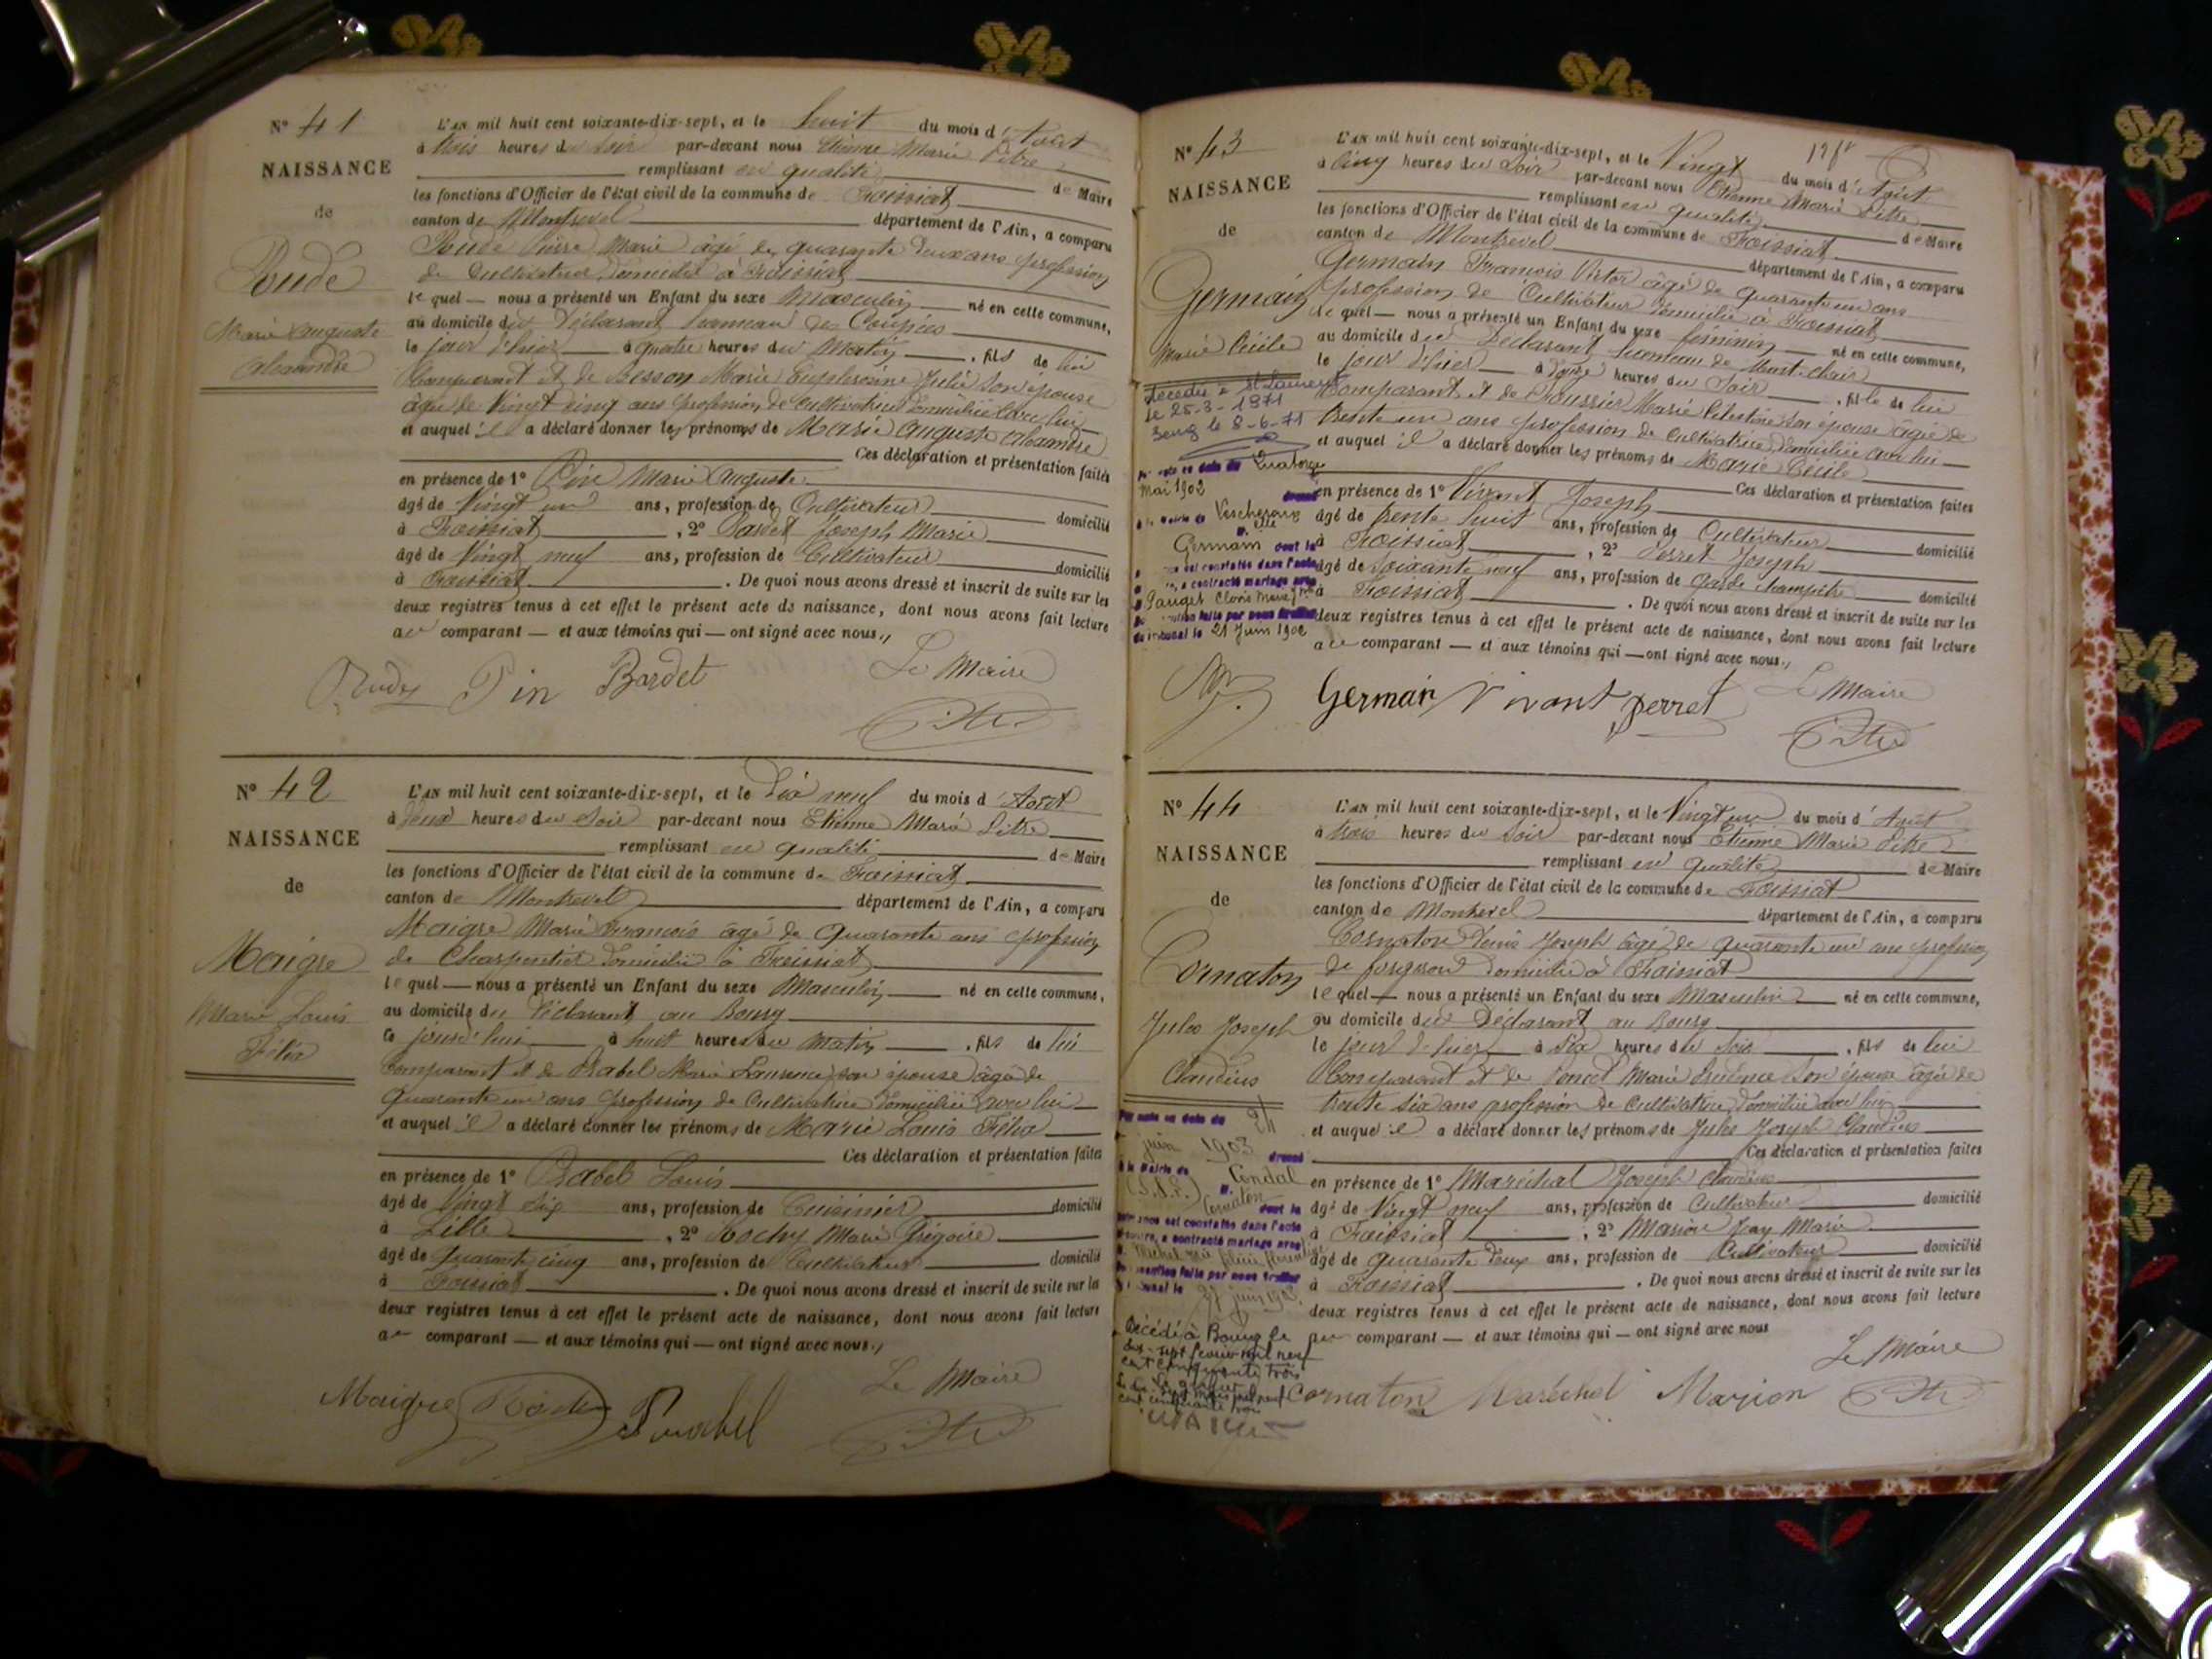 N° 41
NAISSANCE
de
Rude
Marie Auguste
Alexandre
L'AN mil huit cent soixante-dix-sept, et le huit du mois d'Août
à trois heures du soir par-devant nous Etienne Marie Pitre
remplissant en qualité de Maire
les fonctions d'Officier de l'état civil de la commune de Foissiat
canton de Montrevel département de l'Ain, a comparu
Rude Pierre Marie âgé de quarante deux ans profession
de Cultivateur domicilié à Foissiat
lequel nous a présenté un Enfant du sexe Masculin né en cette commune,
au domicile du Déclarant hameau des
le jour d'hier à quatre heures du Matin, fils de lui
Comparant et de Besson Marie Euphrosine Julie son épouse
âgée de Vingt cinq ans profession de Cultivatrice domiciliée avec lui
et auquel il a déclaré donner les prénoms de Marie Auguste Alexandre
Ces déclaration et présentation faites
en présence de 1° Pin Marie Auguste
âgé de Vingt un ans, profession de Cultivateur domicilié
à Foissiat, 2° Bardet Joseph Marie
âgé de Vingt neuf ans, profession de Cultivateur domicilié
à Foissiat. De quoi nous avons dressé et inscrit de suite sur les
deux registres tenus à cet effet le présent acte de naissance, dont nous avons fait lecture
au comparant et aux témoins qui ont signé avec nous.
Rude Pin Bardet Le Maire
Pitre
N° 42
NAISSANCE
de
Maigre
Marie Louis
Félix
L'AN mil huit cent soixante-dix-sept, et le Dix neuf du mois d'Août
à deux heures du Soir par-devant nous Etienne Marie Pitre
remplissant en qualité de Maire
les fonctions d'Officier de l'état civil de la commune de Foissiat
canton de Montrevel département de l'Ain, a comparu
Maigre Marie François âgé de Quarante ans profession
de Charpentier domicilié à Foissiat
lequel nous a présenté un Enfant du sexe Masculin né en cette commune,
au domicile du Déclarant au Bourg
à huit heures du Matin, fils de lui
Comparant et de Marie Laurence son épouse âgée de
Quarante un ans profession de Cultivatrice domiciliée avec lui
et auquel il a déclaré donner les prénoms de Marie Louis Félix
Ces déclaration et présentation faites
en présence de 1° Louis
âgé de Vingt six ans, profession de Cuisinier domicilié
à, 2° Rochy Marie Grégoire
âgé de Quarante cinq ans, profession de Cultivateur domicilié
à Foissiat. De quoi nous avons dressé et inscrit de suite sur les
deux registres tenus à cet effet le présent acte de naissance, dont nous avons fait lecture
au comparant et aux témoins qui ont signé avec nous.
Le Maire
Maigre
Pitre
N° 43
NAISSANCE
de
Germain
Marie Cécile
Décédée à St Laurent
le 25-3-1971
le 8-6-71
Mai 1902
Germain
21 Juin 1902
L'AN mil huit cent soixante-dix-sept, et le Vingt du mois d'Août
à Cinq heures du Soir par-devant nous Etienne Marie Pitre
remplissant en qualité de Maire
les fonctions d'Officier de l'état civil de la commune de Foissiat
canton de Montrevel département de l'Ain, a comparu
Germain François Victor âgé de quarante un ans
profession de Cultivateur domicilié à Foissiat
lequel nous a présenté un Enfant du sexe féminin né en cette commune,
au domicile du Déclarant hameau de Mont-clair
le jour d'hier à onze heures du Soir, fille de lui
Comparant et de Marie Célestine son épouse âgée de
trente un ans profession de Cultivatrice domiciliée avec lui
et auquel il a déclaré donner les prénoms de Marie Cécile
Ces déclaration et présentation faites
en présence de 1° Vivant Joseph
âgé de trente huit ans, profession de Cultivateur domicilié
à Foissiat, 2° Perret Joseph
âgé de Soixante neuf ans, profession de Garde champêtre domicilié
à Foissiat. De quoi nous avons dressé et inscrit de suite sur les
deux registres tenus à cet effet le présent acte de naissance, dont nous avons fait lecture
au comparant et aux témoins qui ont signé avec nous.
Germain Vivant perret Le Maire
Pitre
N° 44
NAISSANCE
de
Cornaton
Jules Joseph
Claudius
24
juin 1903
à la Mairie de Condal
Cornaton
27 juin 1903
Décédé à Bourg le
dix-sept février mil neuf
cent cinquante trois
L'AN mil huit cent soixante-dix-sept, et le Vingt un du mois d'Août
à trois heures du Soir par-devant nous Etienne Marie Pitre
remplissant en qualité de Maire
les fonctions d'Officier de l'état civil de la commune de Foissiat
canton de Montrevel département de l'Ain, a comparu
Cornaton Denis Joseph âgé de quarante un ans profession
de forgeron domicilié à Foissiat
lequel nous a présenté un Enfant du sexe Masculin né en cette commune,
au domicile du Déclarant au Bourg
le jour d'hier à Six heures du Soir, fils de lui
Comparant et de Poncet Marie Prudence son épouse âgée de
trente six ans profession de Cultivatrice domiciliée avec lui
et auquel il a déclaré donner les prénoms de Jules Joseph Claudius
Ces déclaration et présentation faites
en présence de 1° Maréchal Joseph Claudius
âgé de Vingt neuf ans, profession de Cultivateur domicilié
à Foissiat, 2° Marion Jean Marie
âgé de quarante deux ans, profession de Cultivateur domicilié
à Foissiat. De quoi nous avons dressé et inscrit de suite sur les
deux registres tenus à cet effet le présent acte de naissance, dont nous avons fait lecture
au comparant et aux témoins qui ont signé avec nous
Le Maire
Cornaton Maréchal Marion Pitre